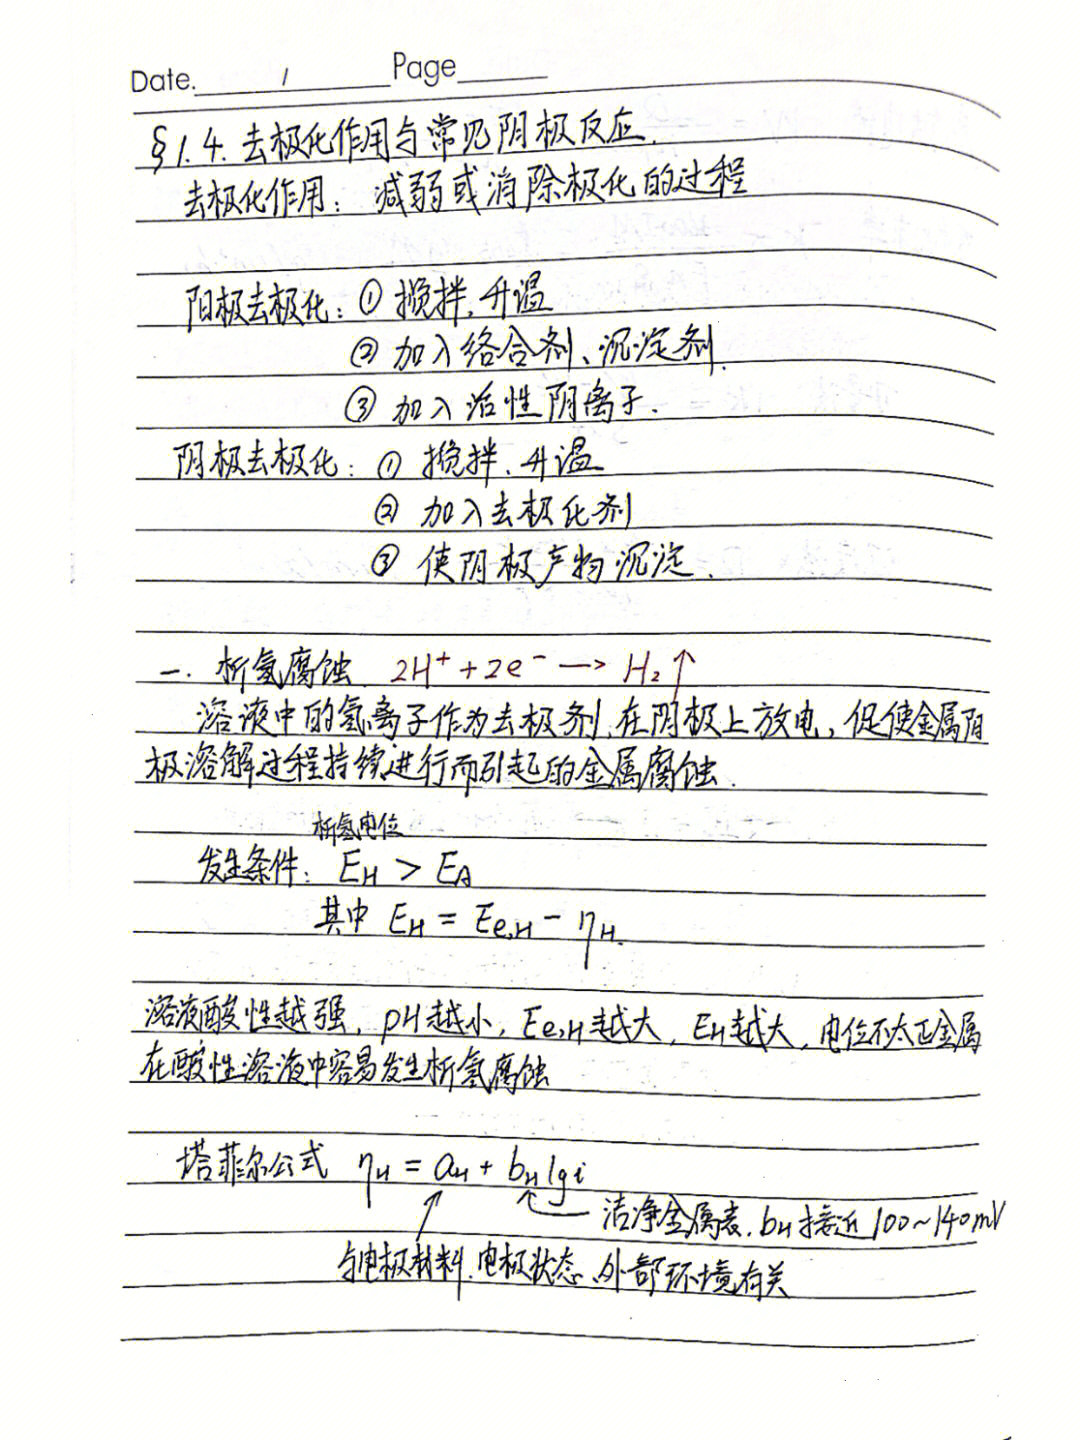 Date. / Page
§1.4. 去极化作用与常见阴极反应.
去极化作用: 减弱或消除极化的过程
阳极去极化: ① 搅拌、升温
② 加入络合剂、沉淀剂.
③ 加入活性阴离子.
阴极去极化: ① 搅拌、升温
② 加入去极化剂
③ 使阴极产物沉淀.
一. 析氢腐蚀. 2H⁺+2e⁻→H₂↑
溶液中的氢离子作为去极剂,在阴极上放电,促使金属阳
极溶解过程持续进行而引起的金属腐蚀.
析氢电位
发生条件: E_H > E_A
其中 E_H = E_e,H - η_H.
溶液酸性越强, pH越小, E_e,H越大, E_H越大, 电位不太正金属
在酸性溶液中容易发生析氢腐蚀
塔菲尔公式 η_H = a_H + b_H lg i
洁净金属表. b_H接近100~140mV
与电极材料、电极状态、外部环境有关